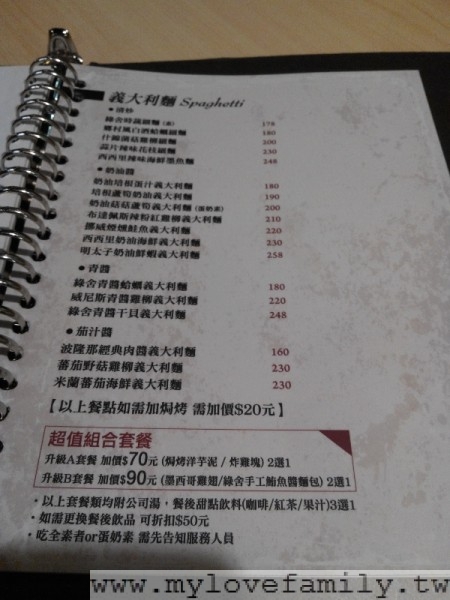 義大利麵 Spaghetti
●清炒
綠舍時蔬細麵(素) 178
鄉村風白酒蛤蠣細麵 180
什錦菌菇雞柳細麵 200
蒜片辣味花枝細麵 230
西西里辣味海鮮墨魚麵 248
●奶油醬
奶油培根蛋汁義大利麵 180
培根蘆筍奶油義大利麵 190
奶油菇菇蘆筍義大利麵(蛋奶素) 200
布達佩斯辣粉紅雞柳義大利麵 210
挪威煙燻鮭魚義大利麵 220
西西里奶油海鮮義大利麵 230
明太子奶油鮮蝦義大利麵 258
●青醬
綠舍青醬蛤蠣義大利麵 180
威尼斯青醬雞柳義大利麵 220
綠舍青醬干貝義大利麵 248
●茄汁醬
波隆那經典肉醬義大利麵 160
蕃茄野菇雞柳義大利麵 230
米蘭蕃茄海鮮義大利麵 230
【以上餐點如需加焗烤 需加價$20元】
超值組合套餐
升級A套餐 加價$70元(焗烤洋芋泥 / 炸雞塊) 2選1
升級B套餐 加價$90元(墨西哥雞翅/綠舍手工鮪魚醬麵包) 2選1
・以上套餐類均附公司湯，餐後甜點飲料(咖啡/紅茶/果汁)3選1
・如需更換餐後飲品 可折扣$50元
・吃全素者or蛋奶素 需先告知服務人員
www.mylovefamily.tw